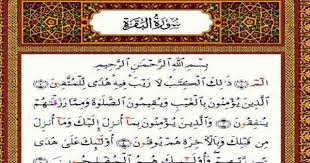 سُورَةُ الْبَقَرَةِ
بِسْمِ اللَّهِ الرَّحْمَٰنِ الرَّحِيمِ
الٓمٓ ذَٰلِكَ الْكِتَٰبُ لَا رَيْبَ فِيهِ هُدًى لِّلْمُتَّقِينَ
الَّذِينَ يُؤْمِنُونَ بِالْغَيْبِ وَيُقِيمُونَ الصَّلَوٰةَ وَمِمَّا رَزَقْنَٰهُمْ
يُنفِقُونَ وَالَّذِينَ يُؤْمِنُونَ بِمَآ أُنزِلَ إِلَيْكَ وَمَآ أُنزِلَ
مِن قَبْلِكَ وَبِالْآخِرَةِ هُمْ يُوقِنُونَ أُو۟لَٰٓئِكَ عَلَىٰ هُدًى
مِّن رَّبِّهِمْ وَأُو۟لَٰٓئِكَ هُمُ الْمُفْلِحُونَ